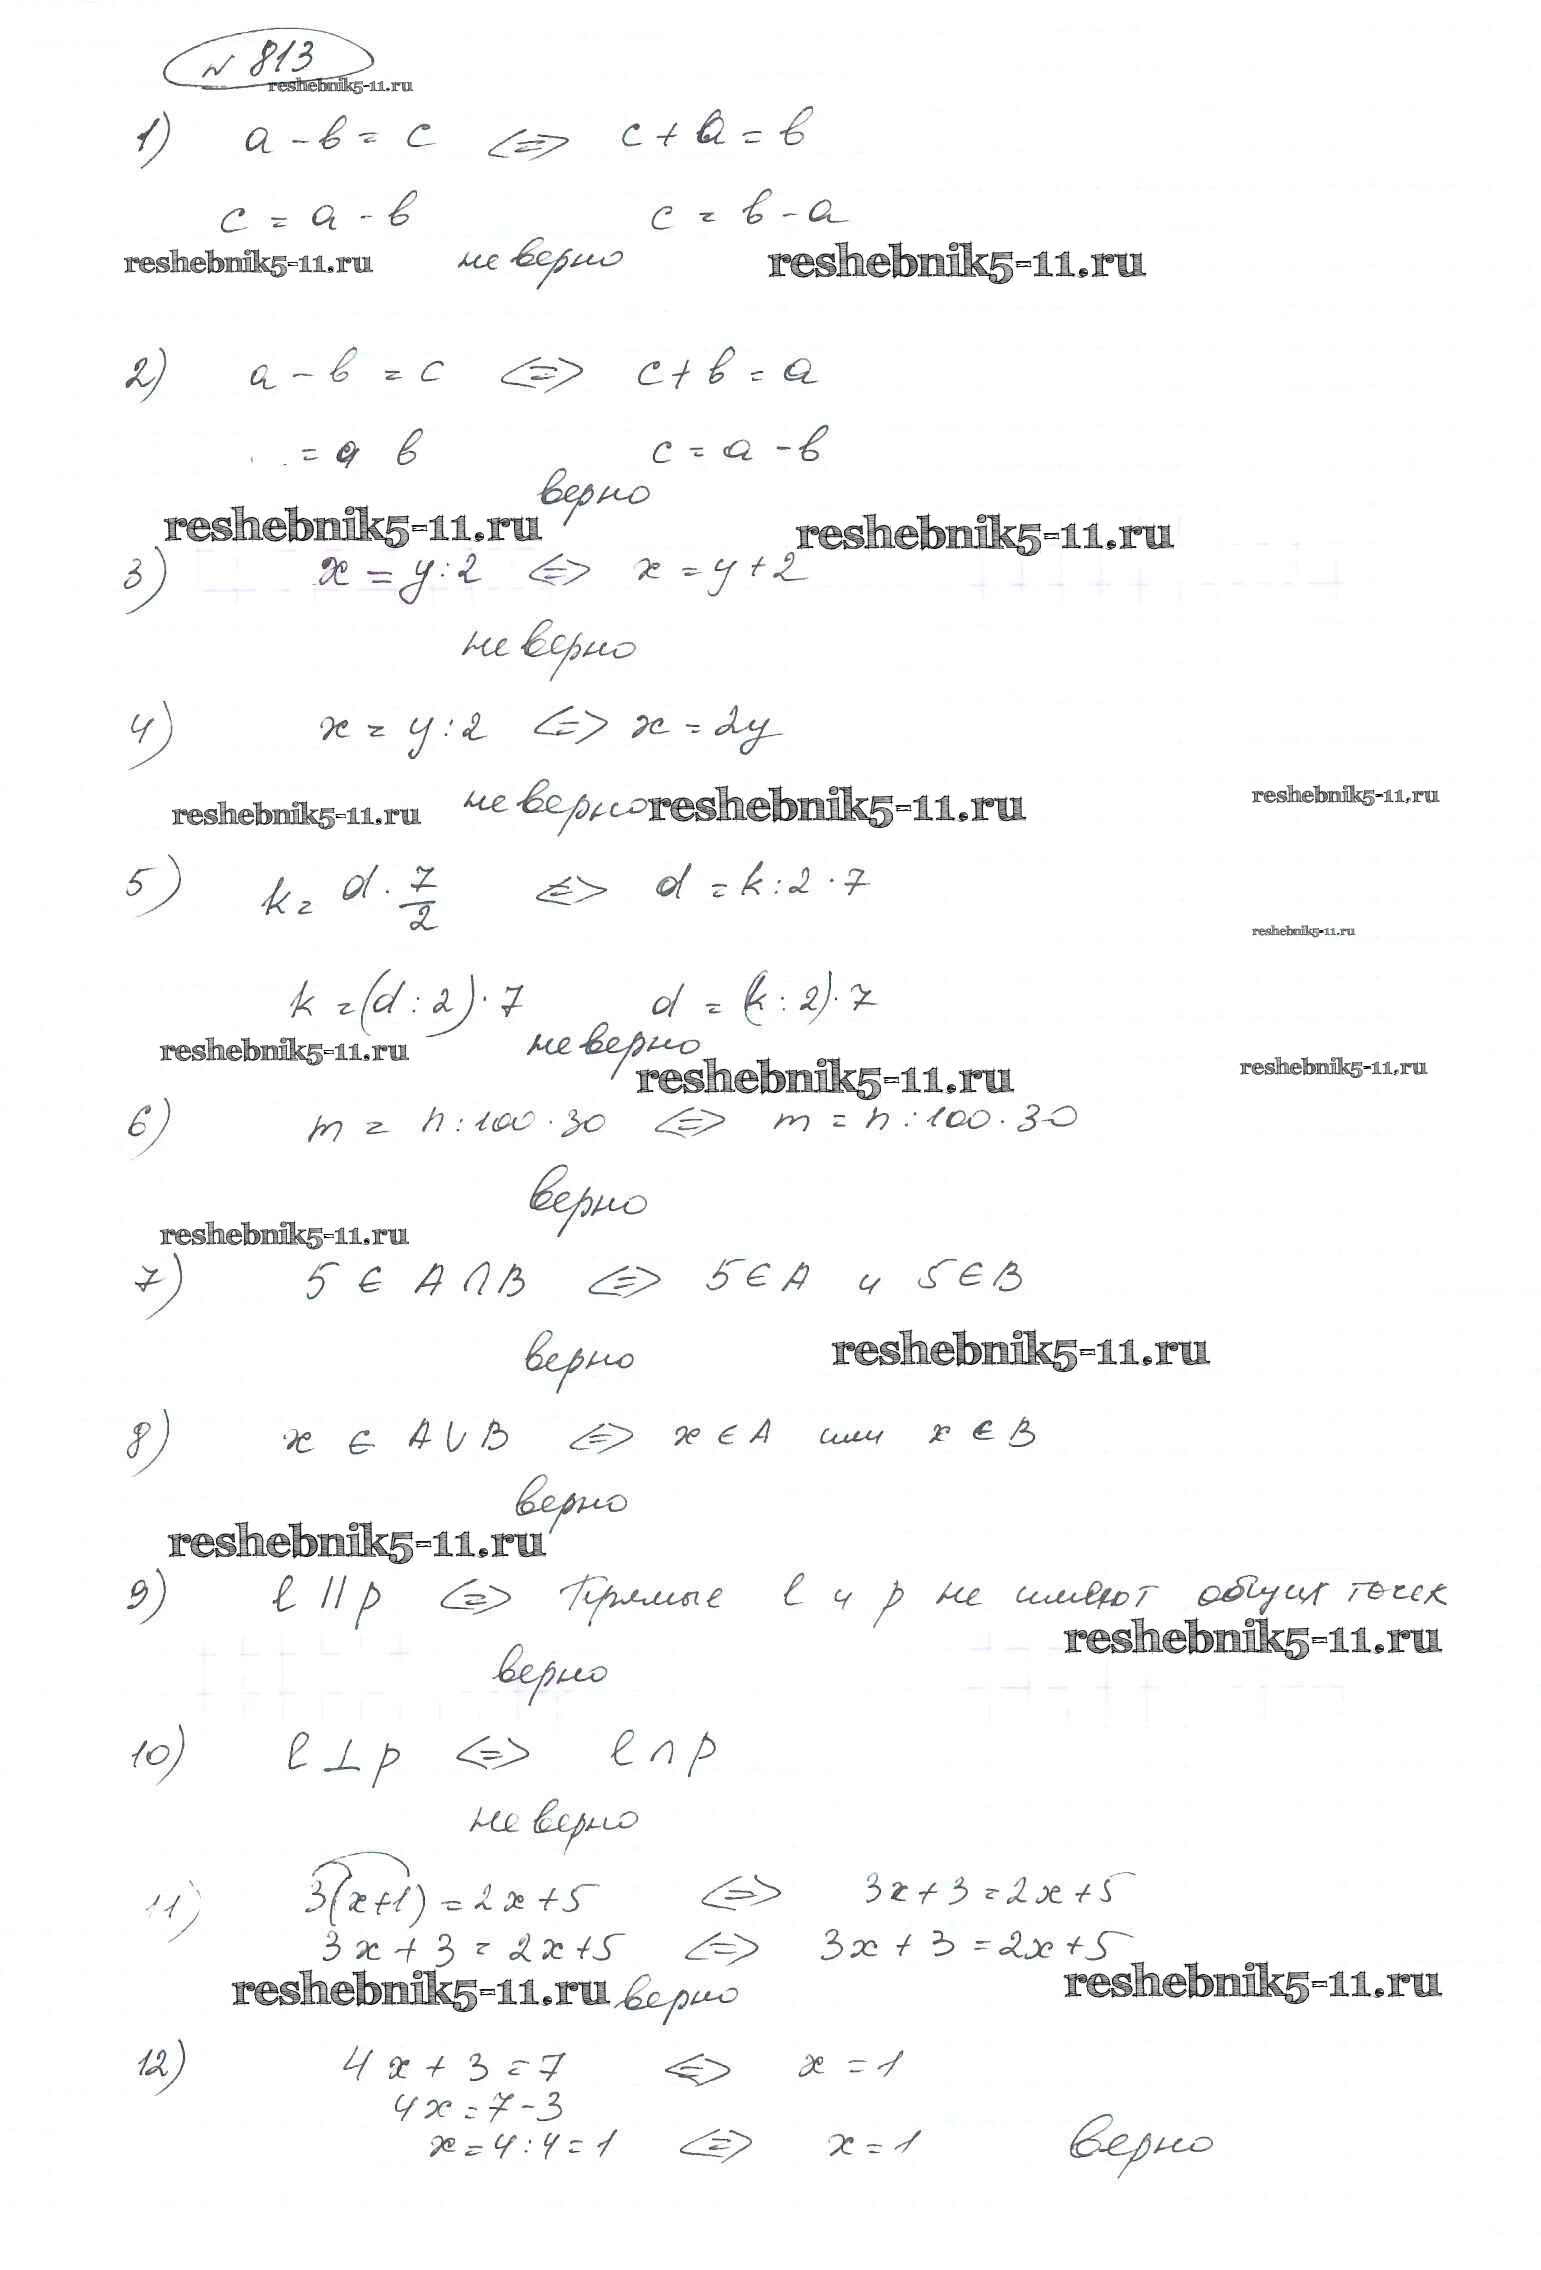 № 813
reshebnik5-11.ru
1) a - b = c <=> c + a = b
c = a - b c = b - a
reshebnik5-11.ru не верно reshebnik5-11.ru
2) a - b = c <=> c + b = a
= a b c = a - b
верно
reshebnik5-11.ru reshebnik5-11.ru
3) x = y : 2 <=> x = y + 2
не верно
4) x = y : 2 <=> x = 2y
reshebnik5-11.ru не верно reshebnik5-11.ru reshebnik5-11.ru
5) k = d · 7/2 <=> d = k : 2 · 7
reshebnik5-11.ru
k = (d : 2) · 7 d = (k : 2) · 7
reshebnik5-11.ru не верно
reshebnik5-11.ru reshebnik5-11.ru
6) m = n : 100 · 30 <=> m = n : 100 · 30
верно
reshebnik5-11.ru
7) 5 ∈ A ∩ B <=> 5 ∈ A и 5 ∈ B
верно reshebnik5-11.ru
8) x ∈ A ∪ B <=> x ∈ A или x ∈ B
верно
reshebnik5-11.ru
9) l || p <=> Прямые l и p не имеют общих точек
reshebnik5-11.ru
верно
10) l ⊥ p <=> l ∩ p
не верно
11) 3(x+1) = 2x + 5 <=> 3x + 3 = 2x + 5
3x + 3 = 2x + 5 <=> 3x + 3 = 2x + 5
reshebnik5-11.ru верно reshebnik5-11.ru
12) 4x + 3 = 7 <=> x = 1
4x = 7 - 3
x = 4 : 4 = 1 <=> x = 1 верно